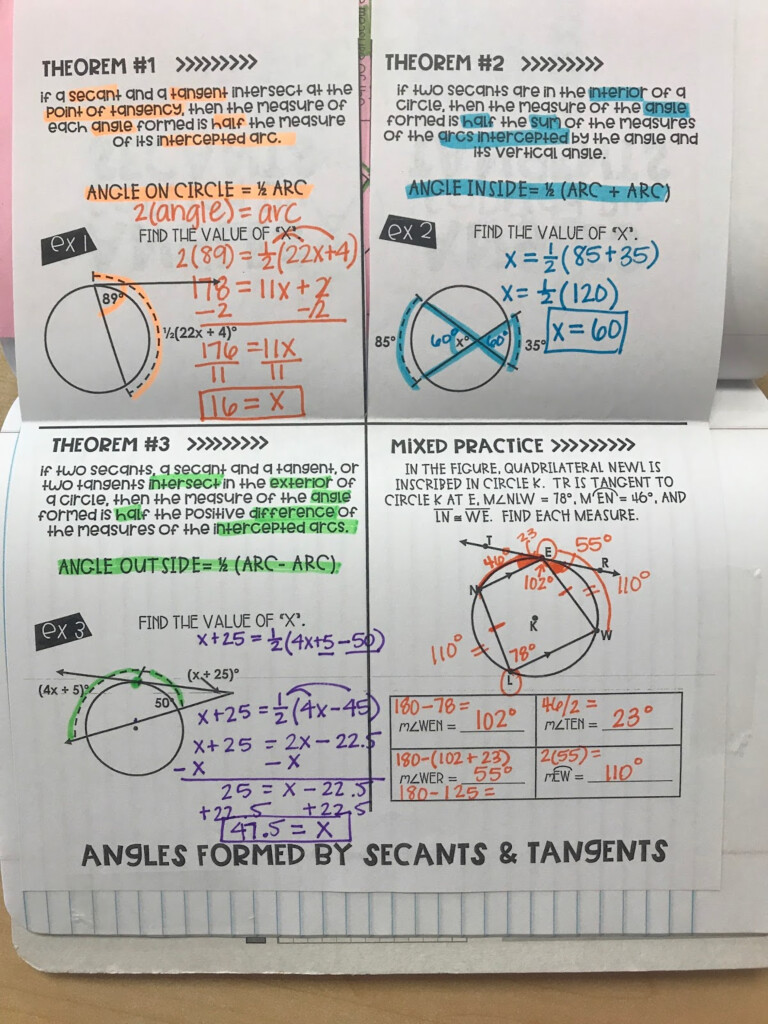 THEOREM #1 >>>>>>>>>
if a secant and a tangent intersect at the
point of tangency, then the measure of
each angle formed is half the measure
of its intercepted arc.
ANGLE ON CIRCLE = ½ ARC
2(angle) = arc
ex 1
FIND THE VALUE OF "X".
2(89) = ½(22x+4)
178 = 11x + 2
-2 -2
89°
½(22x + 4)°
176 = 11x
11 11
16 = x
THEOREM #2 >>>>>>>>>
if two secants are in the interior of a
circle, then the measure of the angle
formed is half the sum of the measures
of the arcs intercepted by the angle and
its vertical angle.
ANGLE INSIDE= ½ (ARC + ARC)
ex 2
FIND THE VALUE OF "X".
x = ½(85+35)
x = ½(120)
x = 60
85°
60°
x°
60°
35°
THEOREM #3 >>>>>>>>>
if two secants, a secant and a tangent, or
two tangents intersect in the exterior of
a circle, then the measure of the angle
formed is half the positive difference of
the measures of the intercepted arcs.
ANGLE OUTSIDE= ½ (ARC- ARC)
ex 3
FIND THE VALUE OF "X".
x+25 = ½(4x+5-50)
(4x + 5)°
(x + 25)°
50°
x+25 = ½(4x-45)
x+25 = 2x-22.5
-x -x
25 = x-22.5
+22.5 +22.5
47.5 = x
MIXED PRACTICE >>>>>>>>>
IN THE FIGURE, QUADRILATERAL NEWL IS
INSCRIBED IN CIRCLE K. TR IS TANGENT TO
CIRCLE K AT E, M∠NLW = 78°, M EN = 46°, AND
LN ≅ WE. FIND EACH MEASURE.
T
23
E
55°
46°
R
102°
110°
N
K
W
110°
78°
L
180-78=
m∠WEN = 102°
46/2 =
m∠TEN = 23°
180-(102+23)
m∠WER = 55°
180-125 =
2(55)=
mEW = 110°
ANGLES FORMED BY SECANTS & TANGENTS